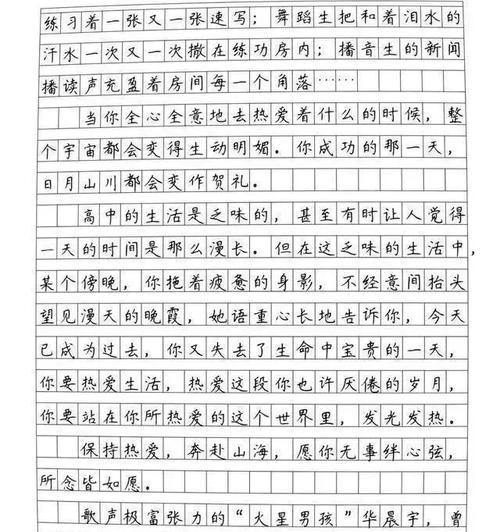 练习着一张又一张速写；舞蹈生把和着泪水的
汗水一次又一次撒在练功房内；播音生的新闻
播读声充盈着房间每一个角落……
当你全心全意地去热爱着什么的时候，整
个宇宙都会变得生动明媚。你成功的那一天，
日月山川都会变作贺礼。
高中的生活是乏味的，甚至有时让人觉得
一天的时间是那么漫长。但在这乏味的生活中，
某个傍晚，你拖着疲惫的身影，不经意间抬头
望见漫天的晚霞，她语重心长地告诉你，今天
已成为过去，你又失去了生命中宝贵的一天，
你要热爱生活，热爱这段你也许厌倦的岁月，
你要站在你所热爱的这个世界里，发光发热。
保持热爱，奔赴山海，愿你无事绊心弦，
所念皆如愿。
歌声极富张力的“火星男孩”华晨宇，曾